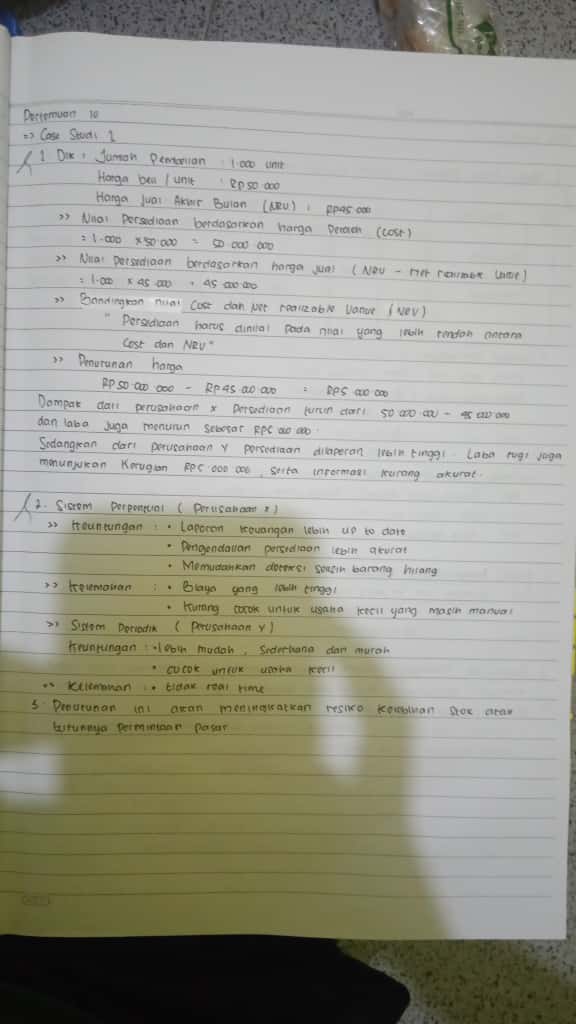 Pertemuan 10
=> Case Studi 1
1. Dik : Jumlah Pembelian : 1.000 unit
Harga beli / unit : Rp 50.000
Harga Jual Akhir Bulan (NRV) : Rp 45.000
>> Nilai Persediaan berdasarkan harga Peroleh (Cost)
= 1.000 x 50.000 = 50.000.000
>> Nilai Persediaan berdasarkan harga jual (NRV - Net realizable Value)
= 1.000 x 45.000 = 45.000.000
>> Bandingkan nilai Cost dan Net realizable Value (NRV)
" Persediaan harus dinilai pada nilai yang lebih rendah antara
Cost dan NRV"
>> Penurunan harga
Rp 50.000.000 - Rp 45.000.000 = Rp 5.000.000
Dampak dari perusahaan x Persediaan turun dari 50.000.000 - 45.000.000
dan laba juga menurun sebesar Rp 5.000.000.
Sedangkan dari perusahaan Y persediaan dilaporan lebih tinggi. Laba rugi juga
menunjukan Kerugian Rp 5.000.000, serta informasi kurang akurat.
2. Sistem Perpentual ( Perusahaan x )
>> Keuntungan : • Laporan Keuangan lebih up to date
• Pengendalian persediaan lebih akurat
• Memudahkan deteksi selisih barang hilang
>> Kelemahan : • Biaya yang lebih tinggi
• Kurang cocok untuk usaha kecil yang masih manual
>> Sistem Periodik ( Perusahaan Y )
Keuntungan : • lebih mudah, Sederhana dan murah
• cucok untuk usaha kecil
>> Kelemahan : • tidak real time
3. Penurunan ini akan meningkatkan resiko Kelebihan Stok atau
turunnya permintaan pasar.